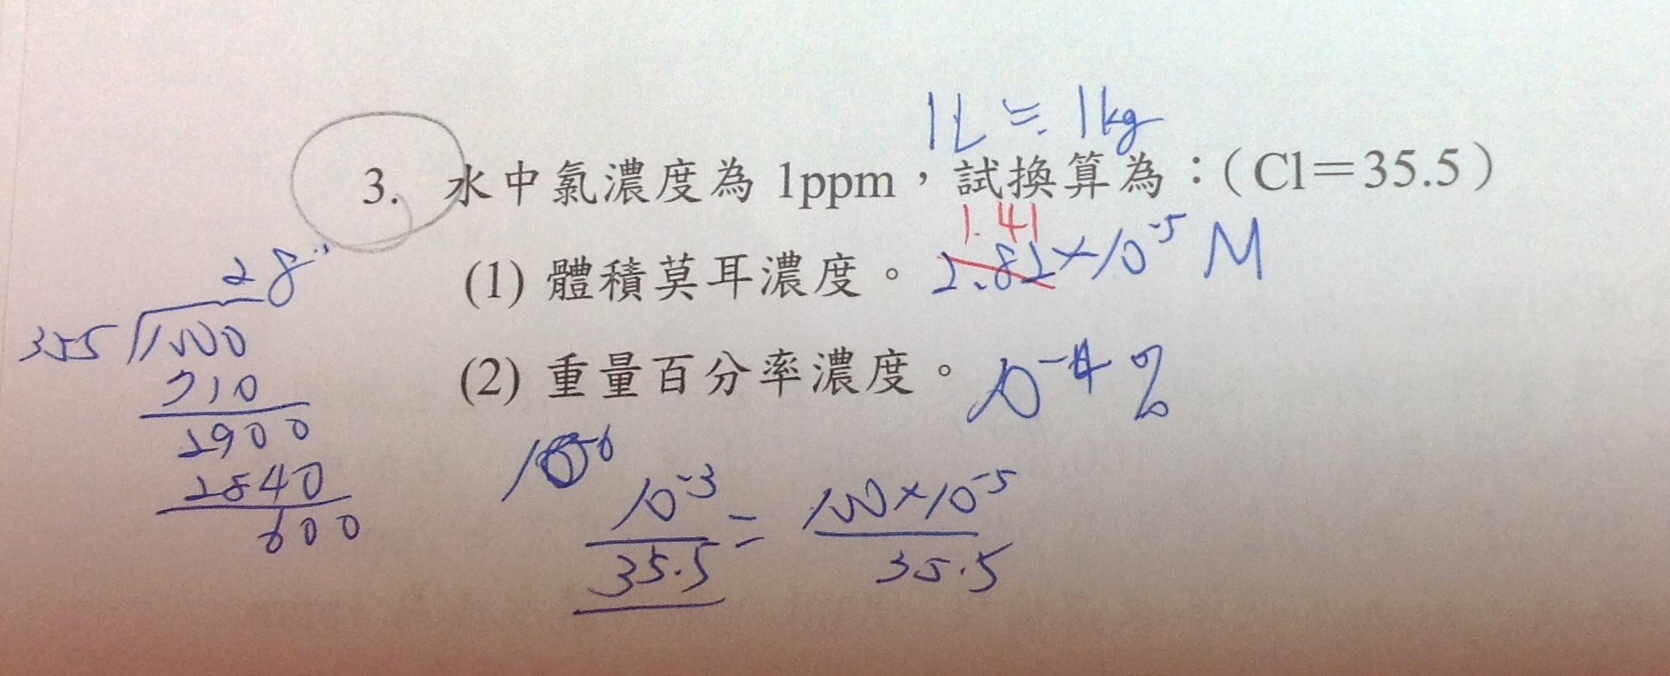 1L ≒ 1kg
3. 水中氯濃度為 1ppm，試換算為：（Cl＝35.5）
1.41
(1) 體積莫耳濃度。 2.82×10⁻⁵ M
(2) 重量百分率濃度。 10⁻⁴ %
28
355 1000
710
2900
2840
600
10⁻⁶
10⁻³ = 100×10⁻⁵
35.5 35.5